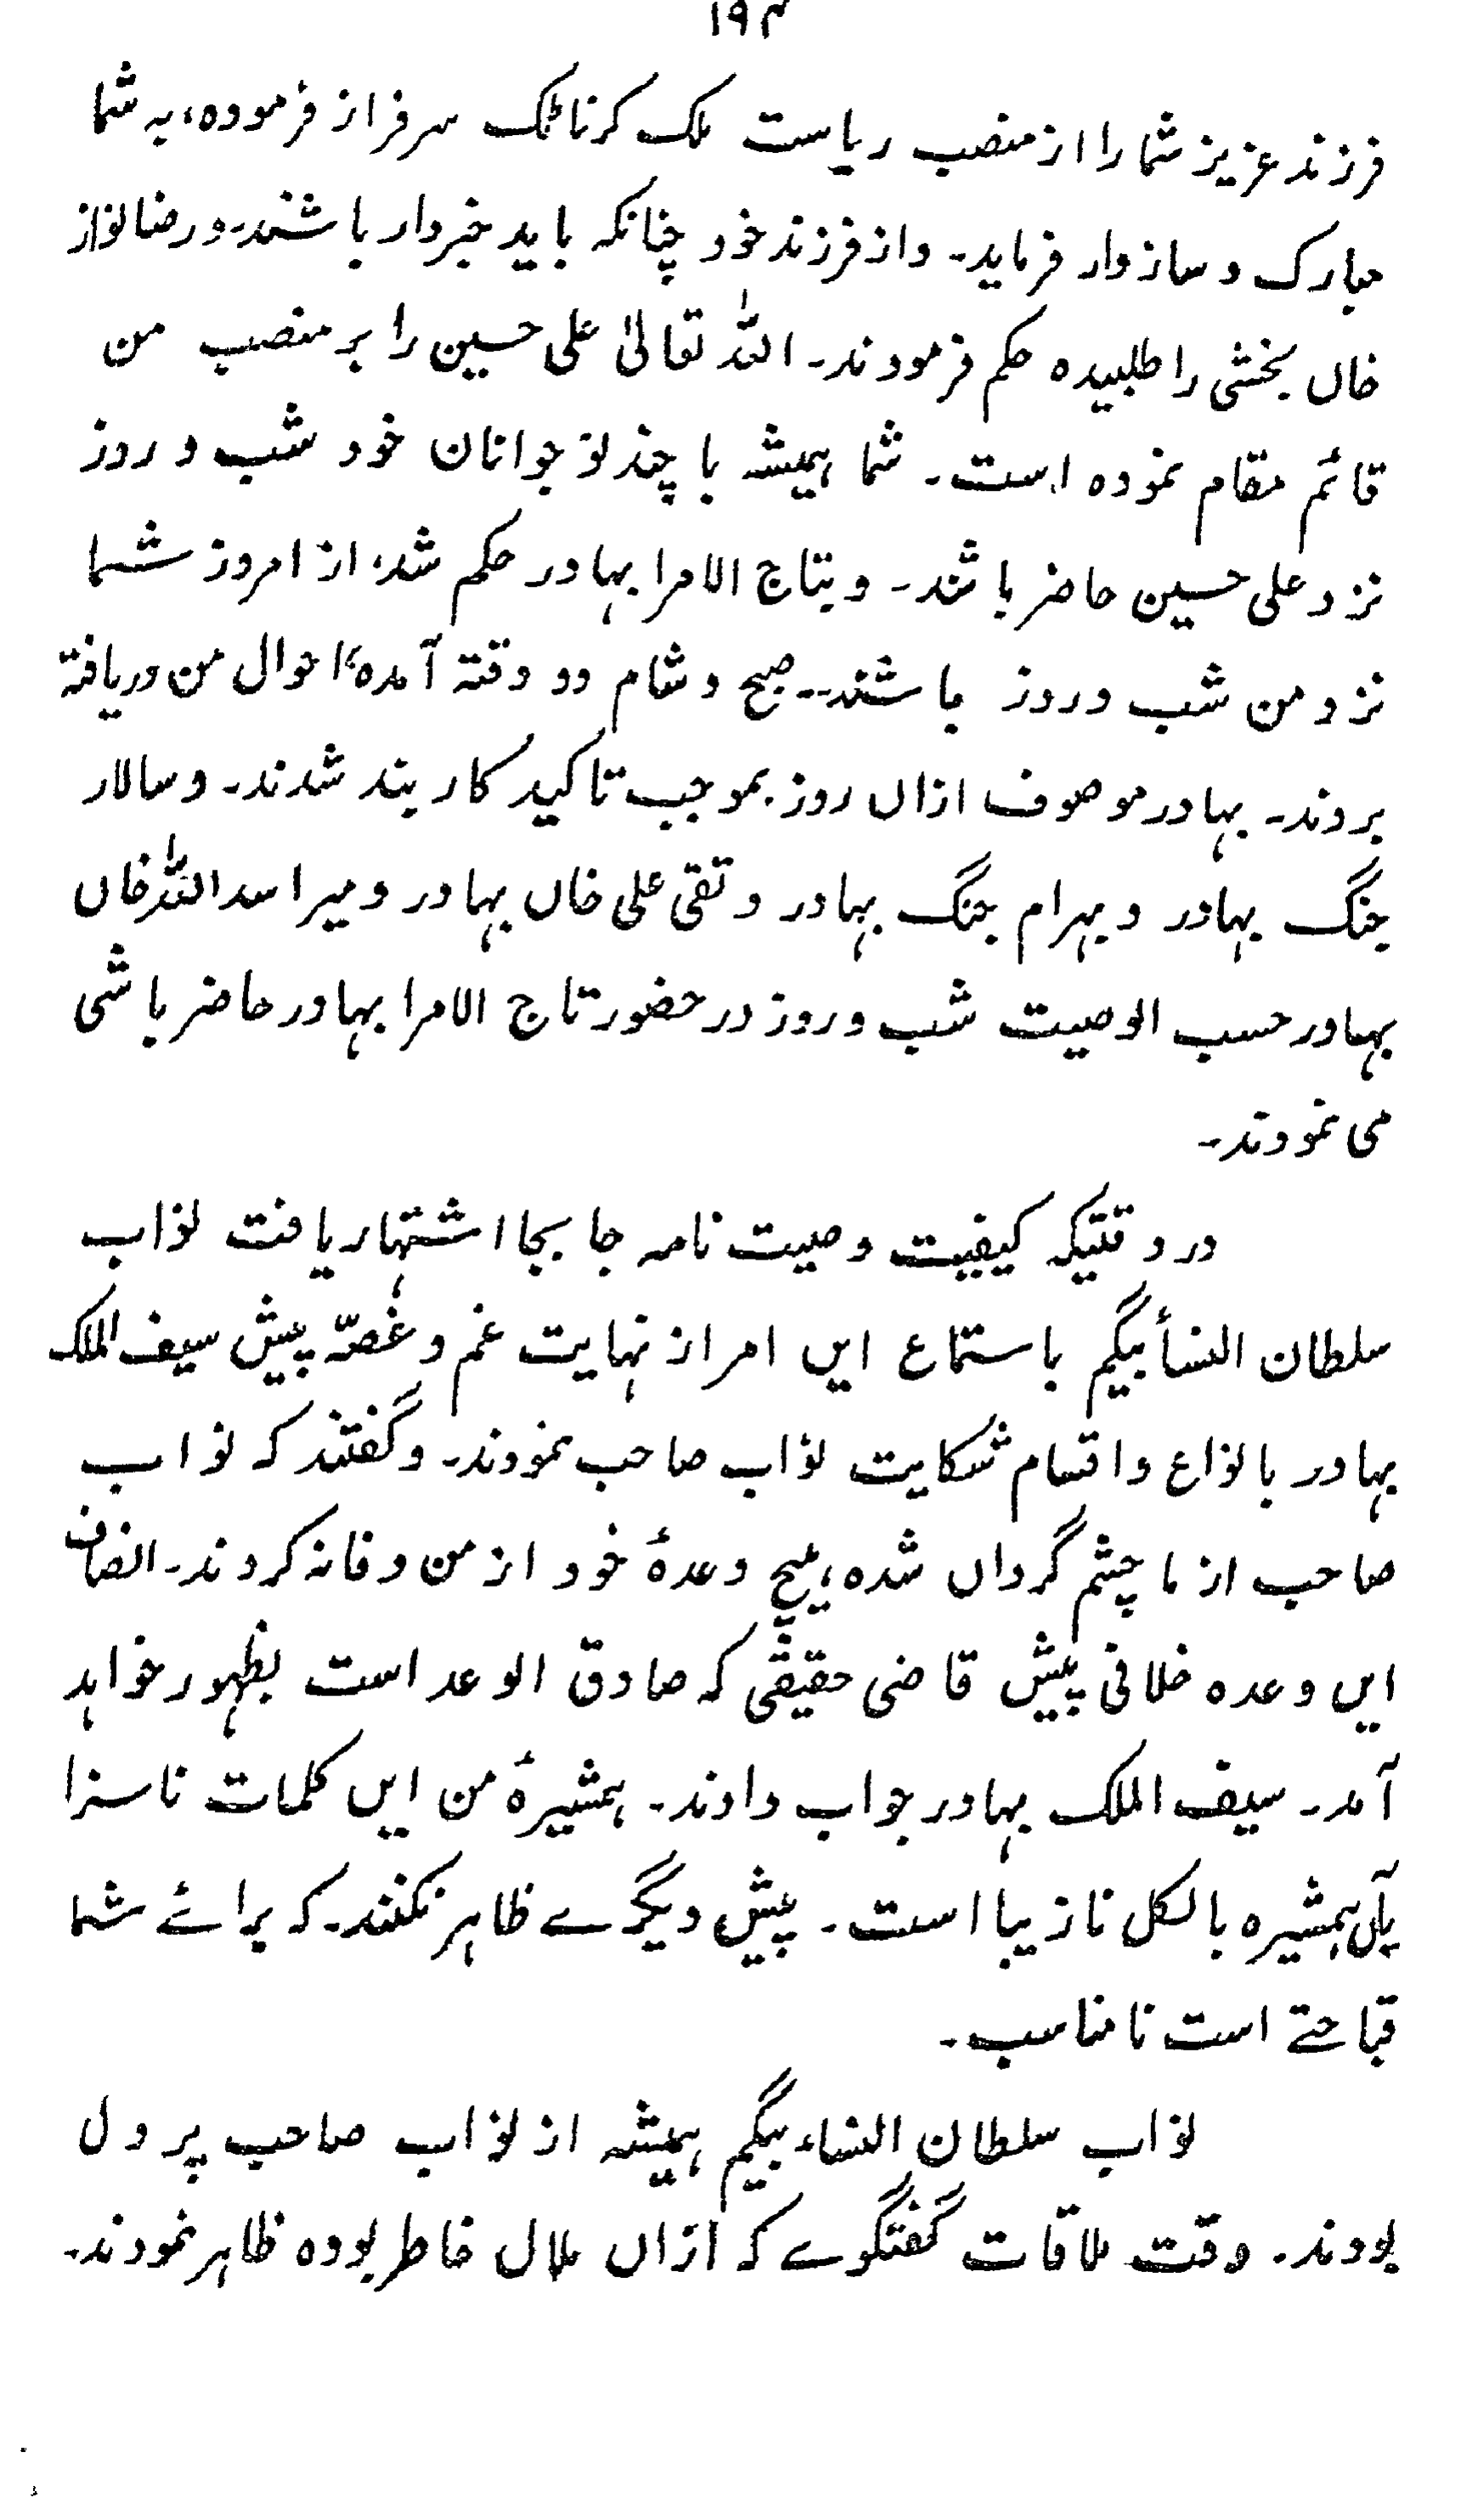 ۱۹۴
فرزند عزیز شما را از منصب ریاست ملک کرناٹک سرفراز فرموده، به شما
مبارک و سازوار فرماید۔ واز فرزند خود چنانکه باید خبردار باشند۔ و رضا نواز
خاں بخشی را طلبیده حکم فرمودند۔ اللہ تعالیٰ علی حسین را بر منصب من
قائم مقام نموده است۔ شما ہمیشہ با چند نوجوانان خود شب و روز
نزد علی حسین حاضر باشند۔ و بتاج الامرا بہادر حکم شد، از امروز شما
نزد من شب و روز باشند۔۔ صبح و شام دو وقتہ آمده، احوال من دریافتہ
بروند۔ بہادر موصوف ازاں روز بموجب تاکید کاربند شدند۔ و سالار
جنگ بہادر و بہرام جنگ بہادر و تقی علی خاں بہادر و میر اسد اللہ خاں
بہادر حسب الوصیت شب و روز در حضور تاج الامرا بہادر حاضر باشی
می نمودند۔
در وقتیکہ کیفیت وصیت نامہ جا بجا اشتہار یافت نواب
سلطان النسأ بیگم باستماع ایں امر از نہایت غم و غصّہ پیش سیف الملک
بہادر بانواع و اقسام شکایت نواب صاحب نمودند۔ و گفتند کہ نواب
صاحب از ما چشم گرداں شده، ہیچ وعدۂ خود از من وفا نہ کردند۔ انصاف
ایں وعده خلافی پیش قاضی حقیقی کہ صادق الوعد است بظہور خواہد
آمد۔ سیف الملک بہادر جواب دادند۔ ہمشیرۂ من ایں کلمات ناسزا
بآں ہمشیره بالکل نازیبا است۔ پیش دیگرے ظاہر نکنند۔ کہ برائے شما
قباحتے است نا مناسب۔
نواب سلطان النساء بیگم ہمیشہ از نواب صاحب پر دل
بودند۔ وقت ملاقات گفتگوے کہ ازاں ملال خاطر بوده ظاہر نمودند۔